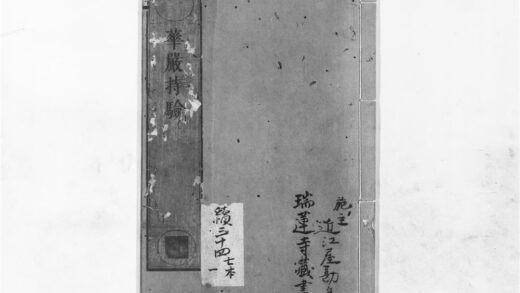 華嚴持驗
施主 近江屋勘
瑞蓮寺藏書
續三十四
七本
一